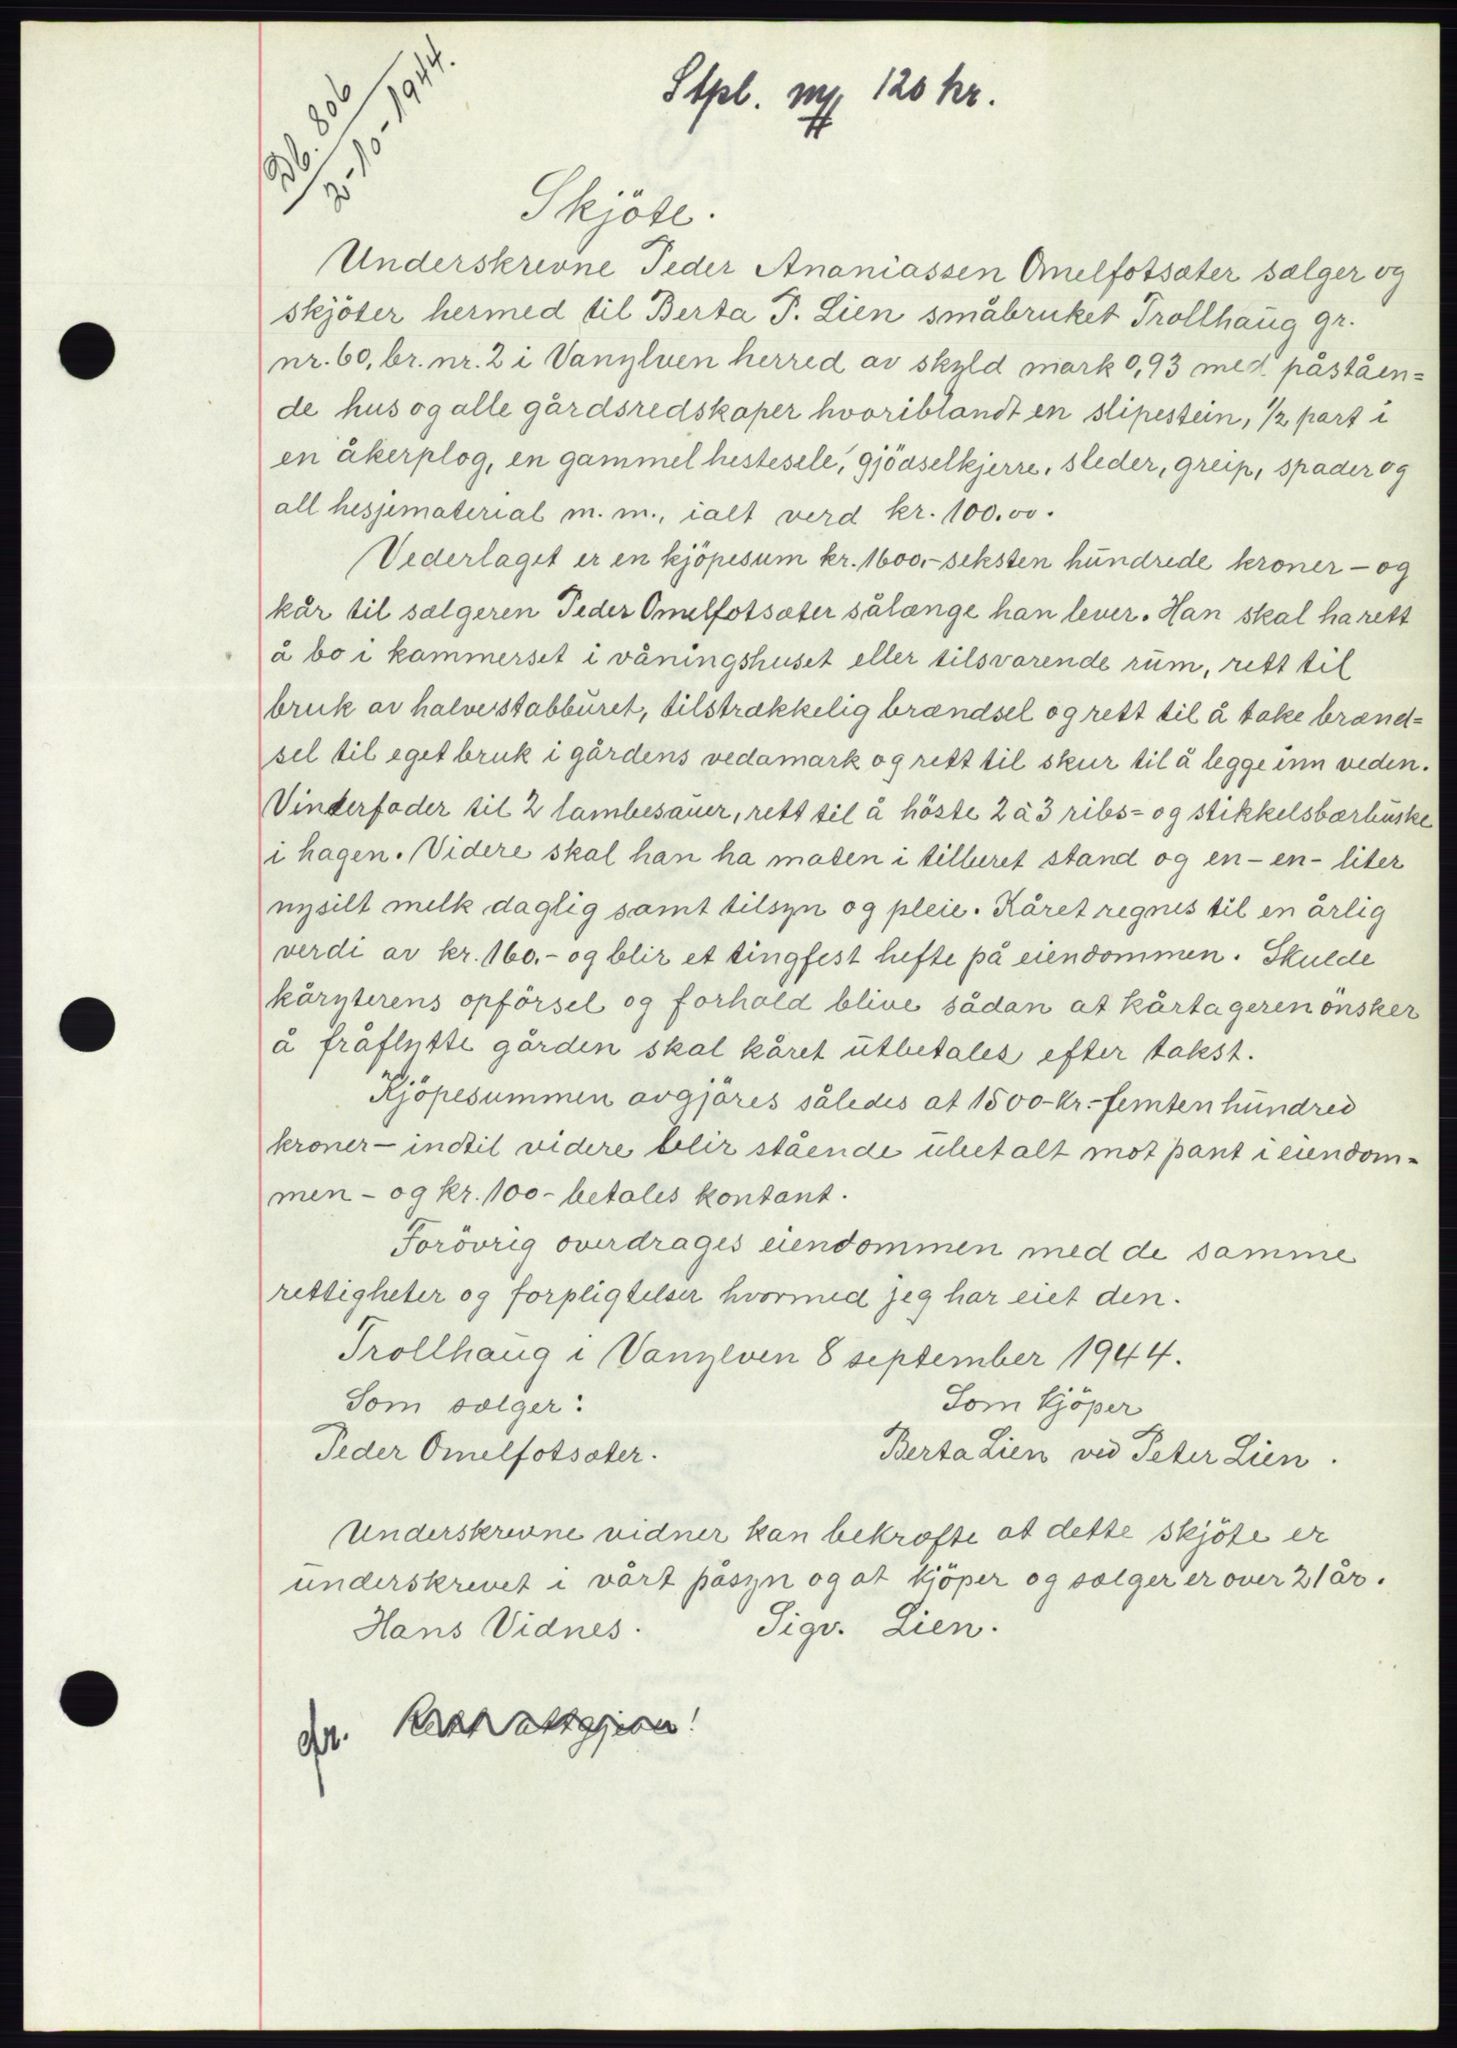 Db. 806
2-10-1944.
Stpl. 120 kr.
Skjöte.
Underskrevne Peder Ananiassen Omelfotsæter sælger og
skjöter hermed til Berta P. Lien småbruket Trollhaug gr.
nr. 60, br. nr. 2 i Vanylven herred av skyld mark 0,93 med påståen=
de hus og alle gårdsredskaper hvoriblandt en slipestein, 1/2 part i
en åkerplog, en gammel hestesele, gjödselkjerre, sleder, greip, spader og
all hesjematerial m. m., ialt verd kr. 100.00.
Vederlaget er en kjöpesum kr. 1600,- seksten hundrede kroner - og
kår til sælgeren Peder Omelfotsæter sålænge han lever. Han skal ha rett
å bo i kammerset i våningshuset eller tilsvarende rum, rett til
bruk av halve stabburet, tilstrækkelig brændsel og rett til å take brænd=
sel til eget bruk i gårdens vedamark og rett til skur til å legge inn veden.
Vinterfoder til 2 lambesauer, rett til å höste 2 à 3 ribs= og stikkelsbærbuske
i hagen. Videre skal han ha maten i tilberet stand og en - en - liter
nysilt melk daglig samt tilsyn og pleie. Kåret regnes til en årlig
verdi av kr. 160.- og blir et tingfest hefte på eiendommen. Skulde
kåryterens opförsel og forhold blive sådan at kårtageren önsker
å fråflytte gården skal kåret utbetales efter takst.
Kjöpesummen avgjöres således at 1500-kr.- femten hundred
kroner - indtil videre blir stående ubetalt mot pant i eiendom=
men - og kr. 100- betales kontant.
Forövrig overdrages eiendommen med de samme
rettigheter og forpligtelser hvormed jeg har eiet den.
Trollhaug i Vanylven 8 september 1944.
Som sælger:
Som kjöper
Peder Omelfotsæter.
Berta Lien ved Peter Lien.
Underskrevne vidner kan bekræfte at dette skjöte er
underskrevet i vårt påsyn og at kjöper og sælger er over 21 år.
Hans Vidnes.
Sigv. Lien.